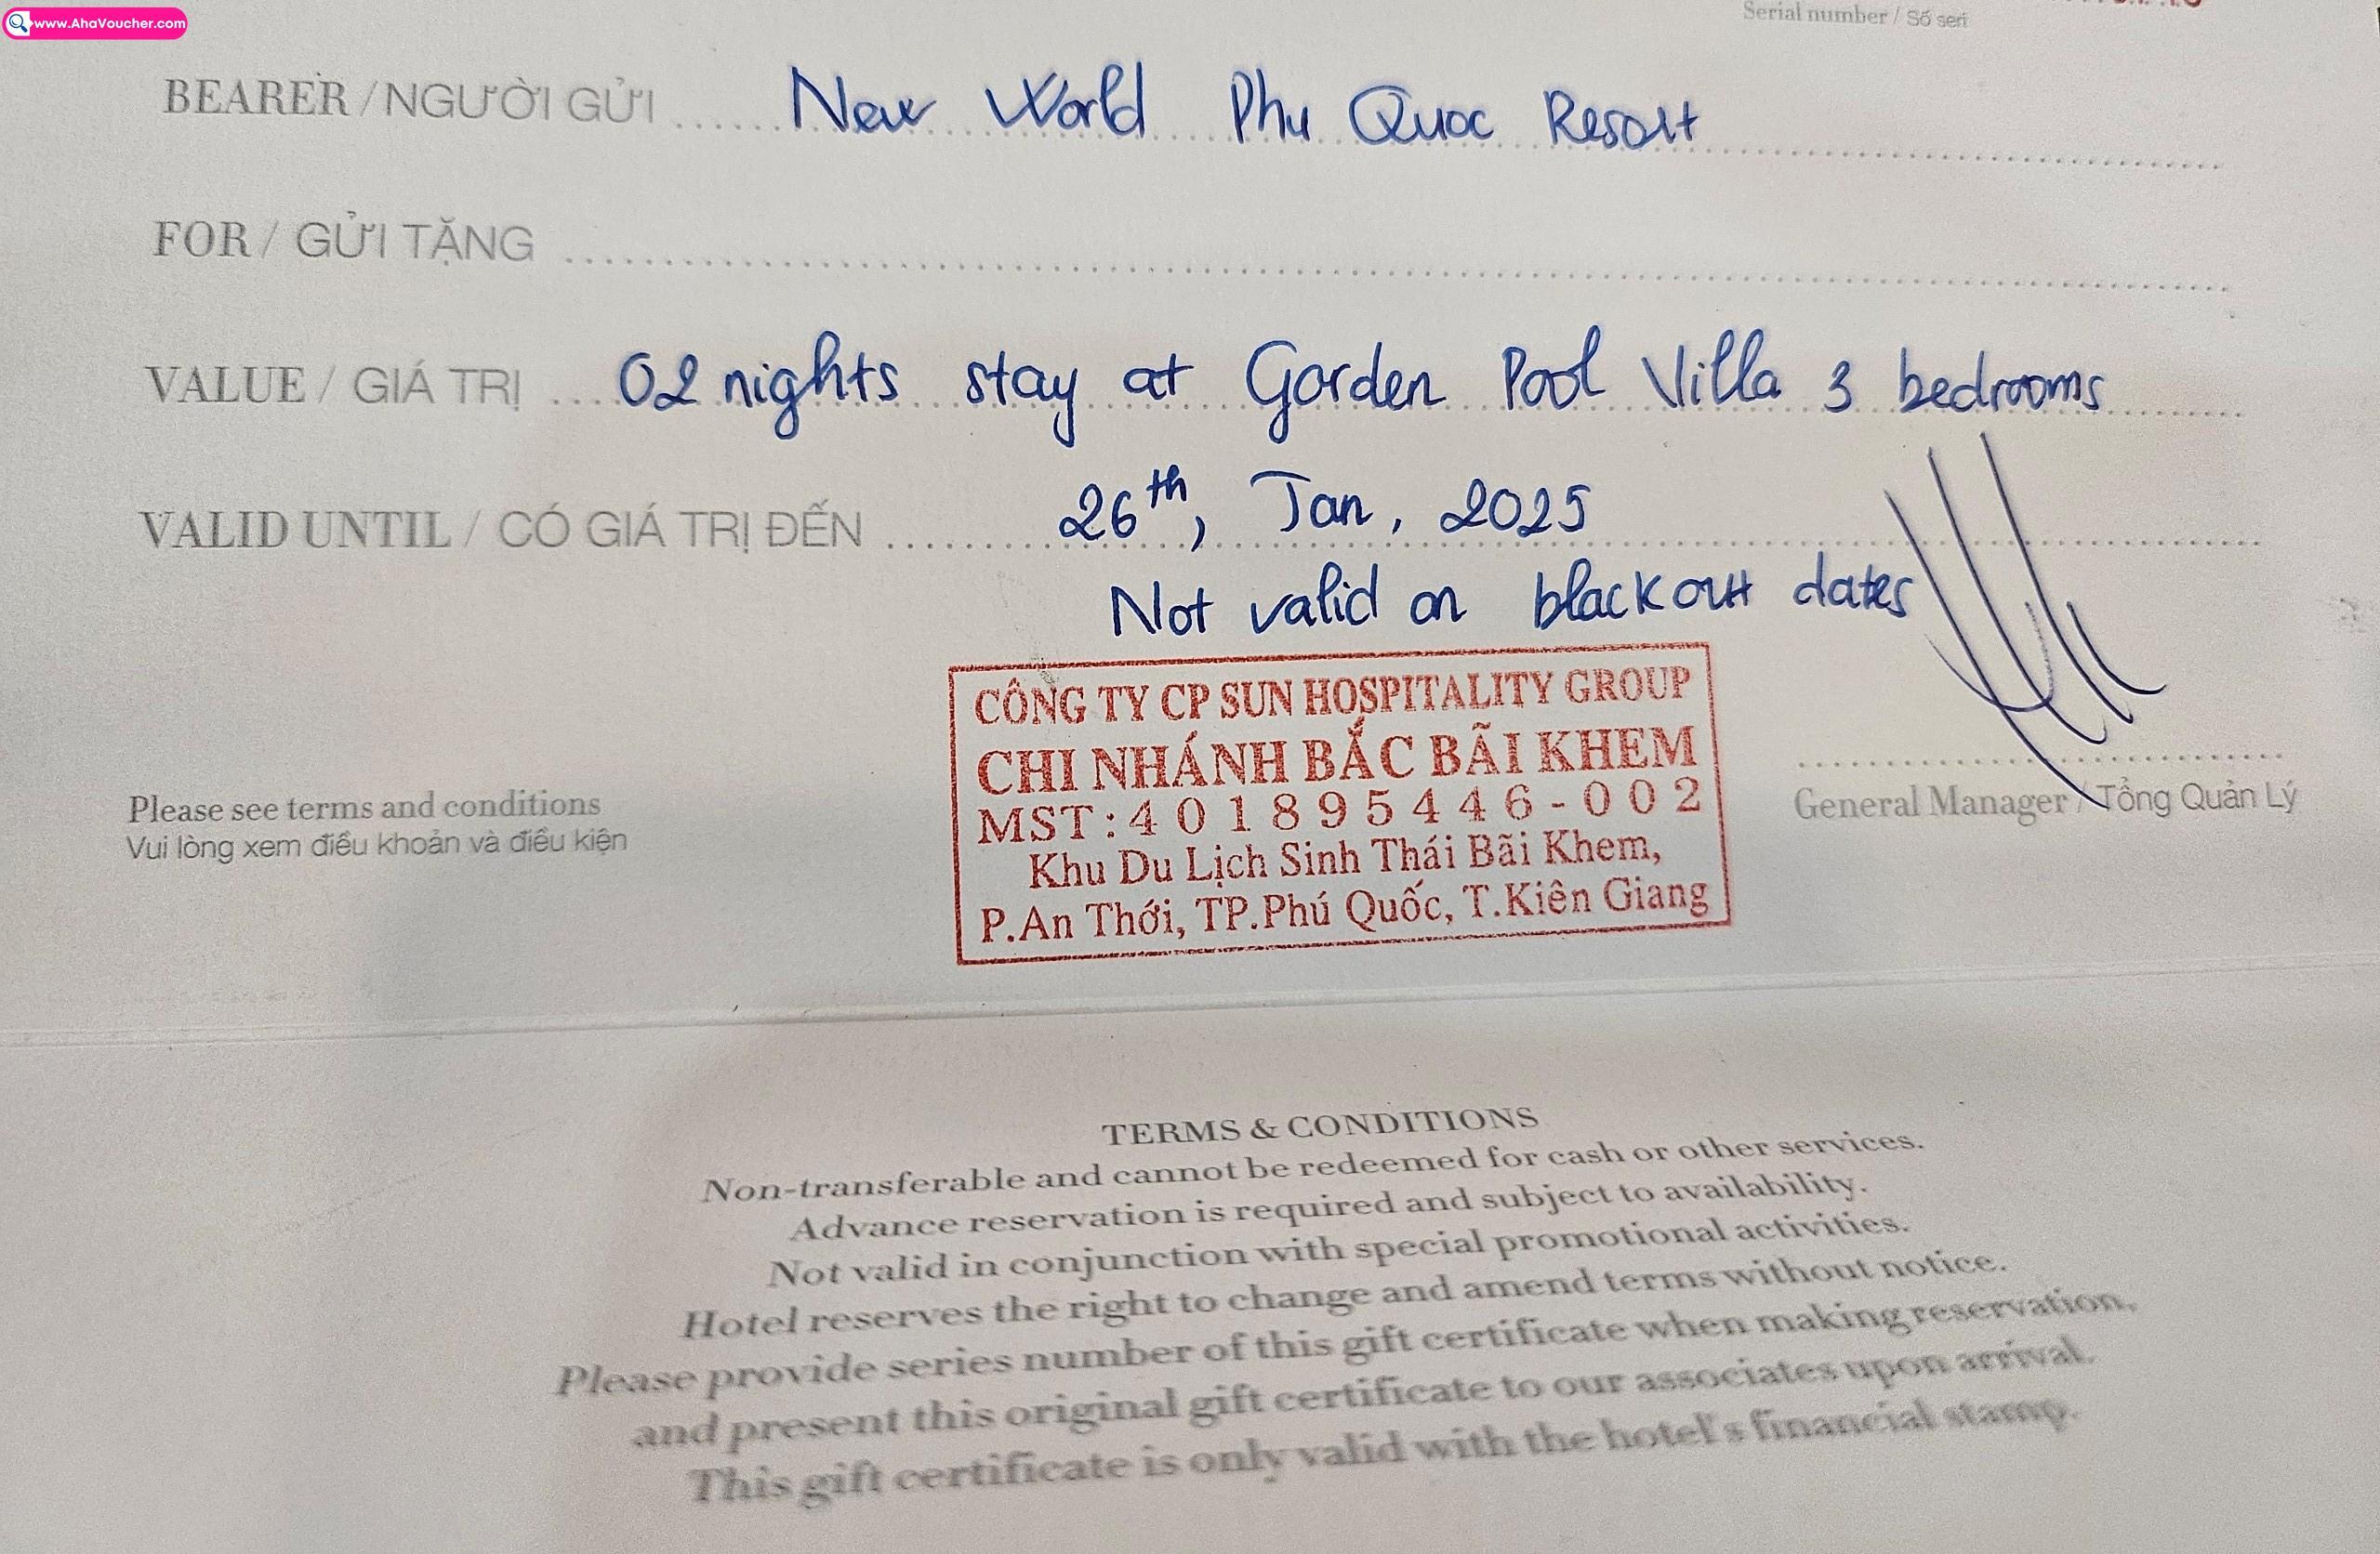 www.AhaVoucher.com
Serial number / Số seri
BEARER / NGƯỜI GỬI ..... New World Phu Quoc Resort
FOR / GỬI TẶNG
VALUE / GIÁ TRỊ .... 02 nights stay at Garden Pool Villa 3 bedrooms
VALID UNTIL / CÓ GIÁ TRỊ ĐẾN ..... 26th, Jan, 2025
Not valid on blackout dates
CÔNG TY CP SUN HOSPITALITY GROUP
CHI NHÁNH BẮC BÃI KHEM
MST: 401895446-002
Khu Du Lịch Sinh Thái Bãi Khem,
P.An Thới, TP.Phú Quốc, T.Kiên Giang
General Manager / Tổng Quản Lý
Please see terms and conditions
Vui lòng xem điều khoản và điều kiện
TERMS & CONDITIONS
Non-transferable and cannot be redeemed for cash or other services.
Advance reservation is required and subject to availability.
Not valid in conjunction with special promotional activities.
Hotel reserves the right to change and amend terms without notice.
Please provide series number of this gift certificate when making reservation,
and present this original gift certificate to our associates upon arrival.
This gift certificate is only valid with the hotel's financial stamp.